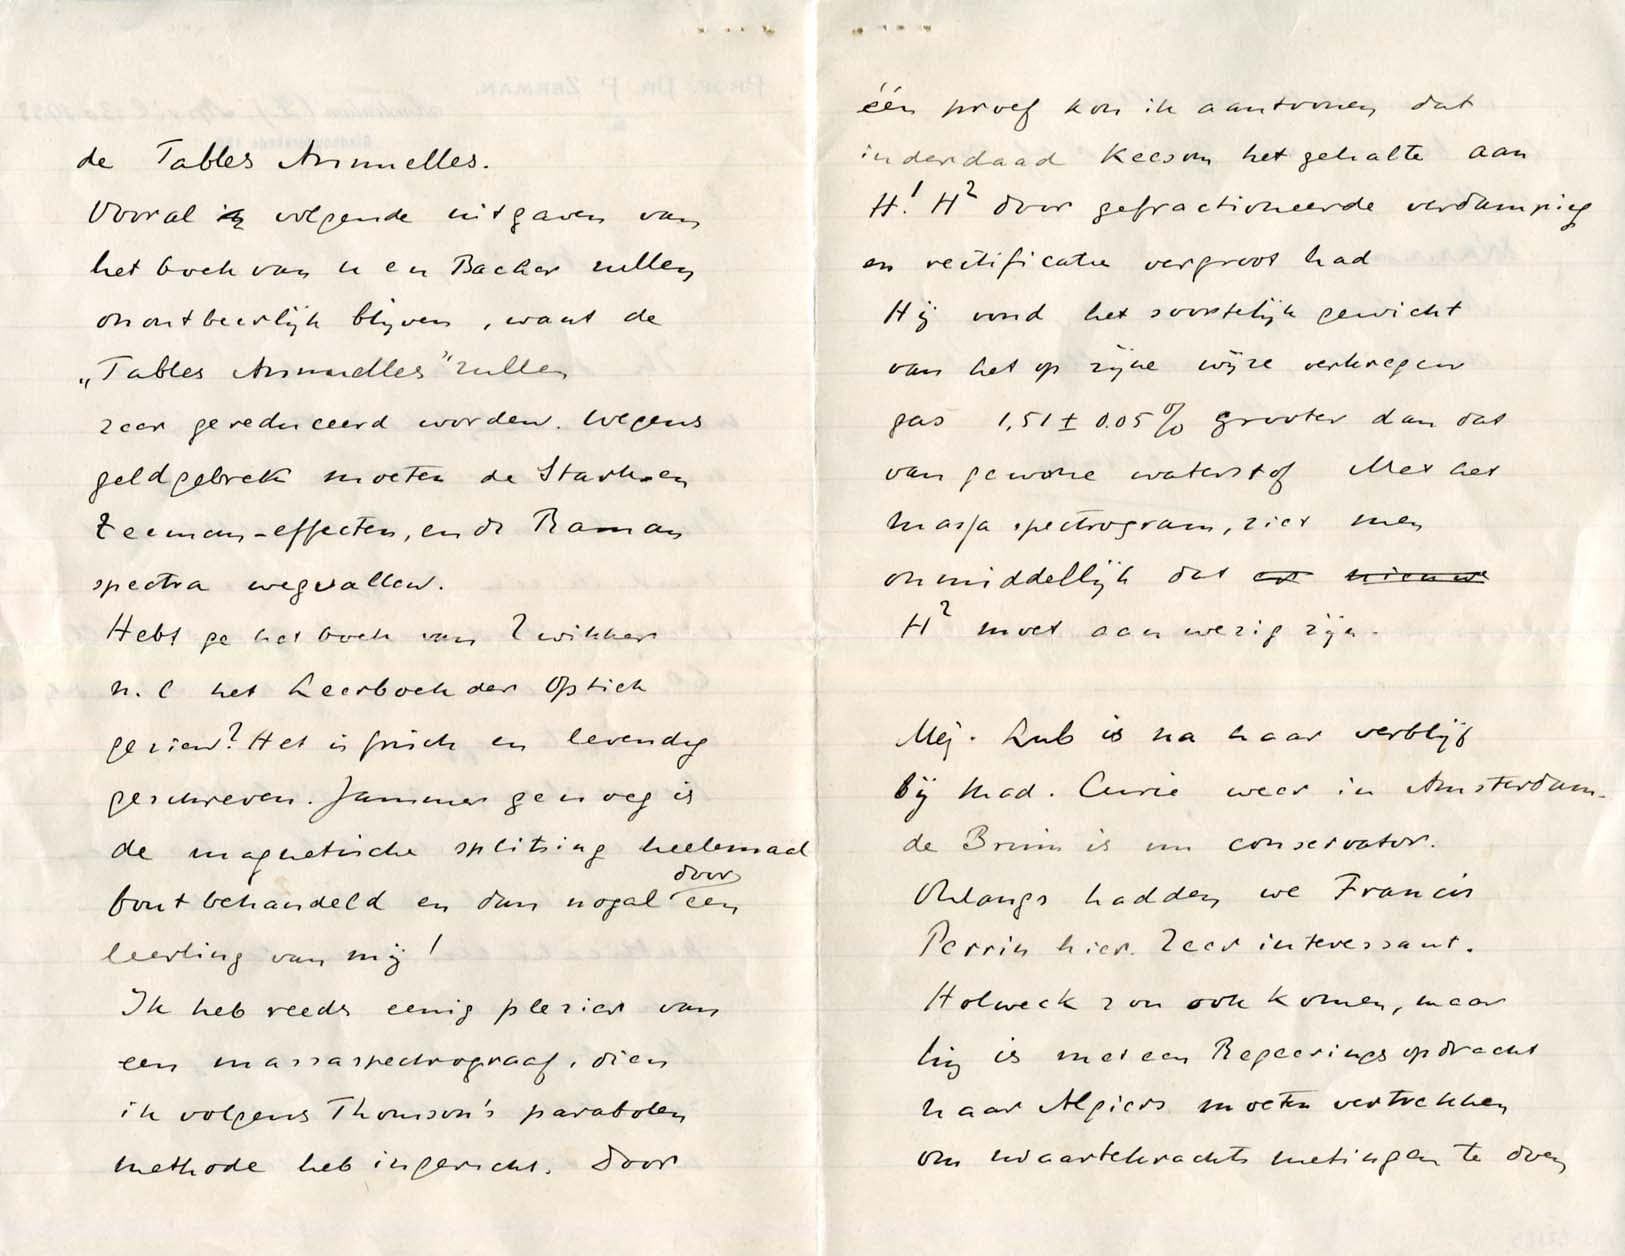 de Tables Annuelles.
Vooral in volgende uitgaven van
het boek van u en Bacher zullen
onontbeerlijk blijven, want de
„Tables Annuelles" zullen
zeer gereduceerd worden. Wegens
geldgebrek moeten de Stark en
Zeeman-effecten, en de Raman
spectra wegvallen.
Hebt ge het boek van Zwikker
n.l het Leerboek der Optiek
gezien? Het is frisch en levendig
geschreven. Jammer genoeg is
de magnetische splitsing heelemaal
fout behandeld en dan nogal door een
leerling van mij!
Ik heb reeds eenig plezier van
een massaspectrograaf, dien
ik volgens Thomson's parabolen
methode heb ingericht. Door
één proef kon ik aantoonen dat
inderdaad Keesom het gehalte aan
H¹ H² door gefractioneerde verdamping
en rectificatie vergroot had
Hij vond het soortelijk gewicht
van het op zijne wijze verkregen
gas 1,51 ± 0.05 % grooter dan dat
van gewone waterstof Met het
massa spectrogram, ziet men
onmiddellijk dat er nieuw
H² moet aanwezig zijn.
Mej. Lub is na haar verblijf
bij Mad. Curie weer in Amsterdam.
de Bruin is nu conservator.
Onlangs hadden we Francis
Perrin hier. Zeer interessant.
Holweck zou ook komen, maar
hij is met een Regeeringsopdracht
naar Algiers moeten vertrekken
om zwaartekrachts metingen te doen